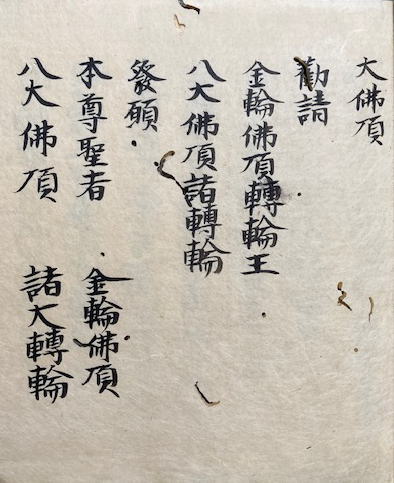 大佛頂
勸請
金輪佛頂轉輪王
八大佛頂諸轉輪
發願
本尊聖者 金輪佛頂
八大佛頂 諸大轉輪